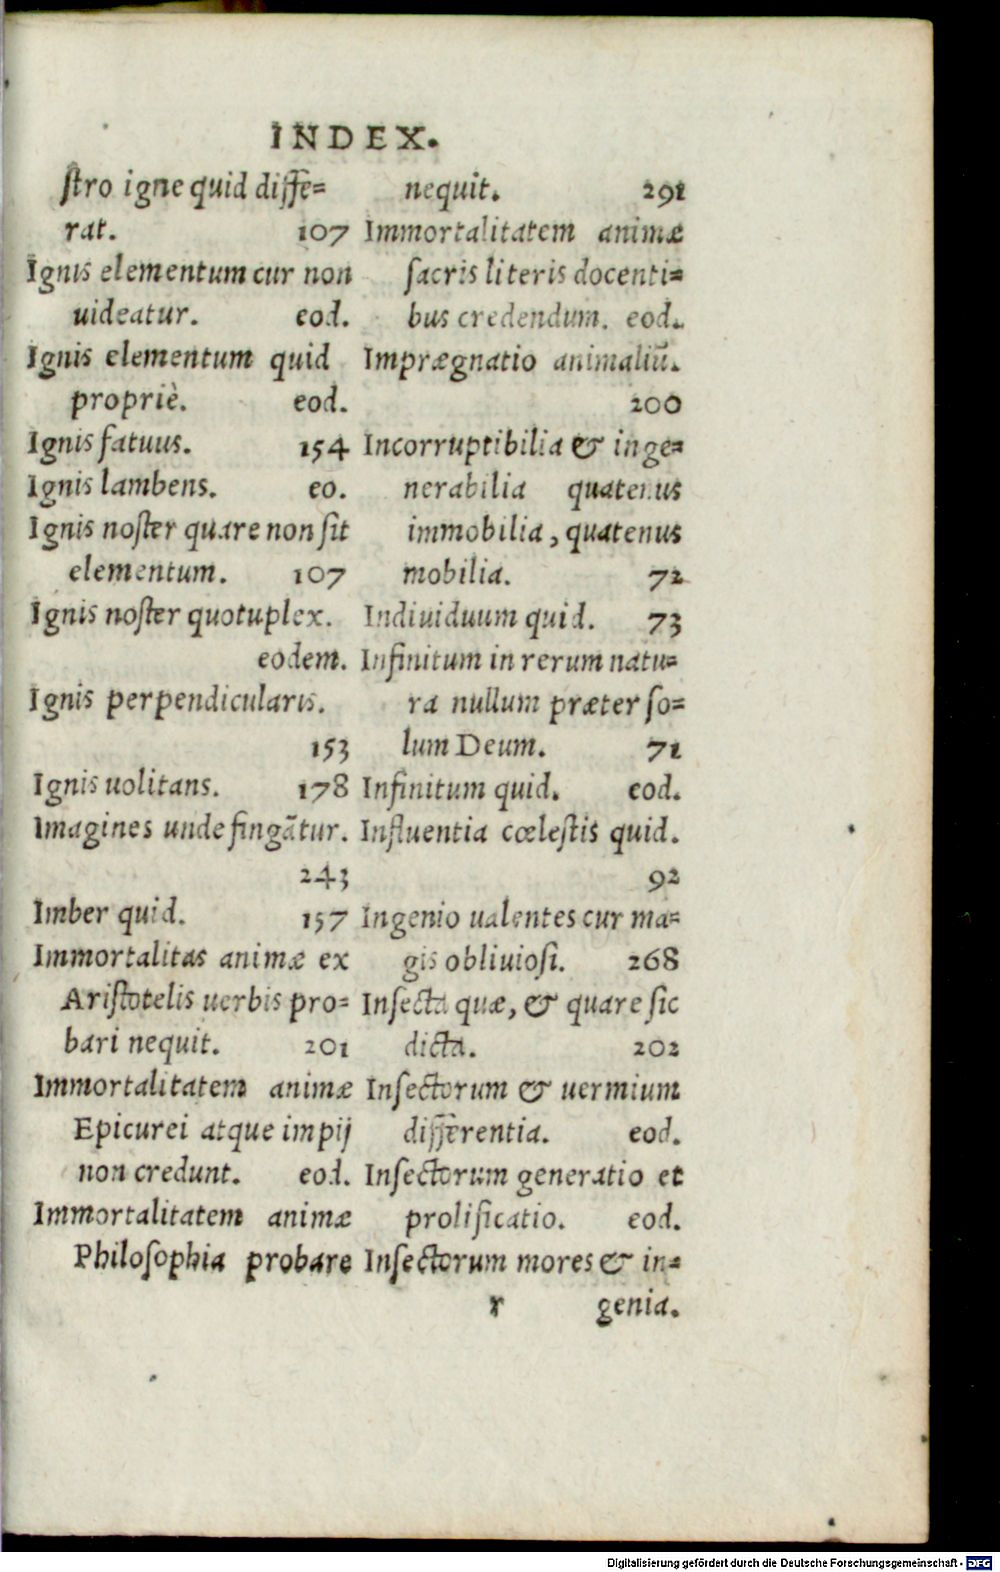 INDEX.
stro igne quid diffe=
rat. 107
Ignis elementum cur non
uideatur. eod.
Ignis elementum quid
propriè. eod.
Ignis fatuus. 154
Ignis lambens. eo.
Ignis noster quare non sit
elementum. 107
Ignis noster quotuplex.
eodem.
Ignis perpendicularis.
153
Ignis uolitans. 178
Imagines unde fingātur.
243
Imber quid. 157
Immortalitas animæ ex
Aristotelis uerbis pro=
bari nequit. 201
Immortalitatem animæ
Epicurei atque impij
non credunt. eod.
Immortalitatem animæ
Philosophia probare
nequit. 291
Immortalitatem animæ
sacris literis docenti=
bus credendum. eod.
Imprægnatio animaliū.
200
Incorruptibilia & inge=
nerabilia quatenus
immobilia, quatenus
mobilia. 72
Indiuiduum quid. 73
Infinitum in rerum natu=
ra nullum præter so=
lum Deum. 71
Infinitum quid. eod.
Influentia cœlestis quid.
92
Ingenio ualentes cur ma=
gis obliuiosi. 268
Insecta quæ, & quare sic
dicta. 202
Insectorum & uermium
differentia. eod.
Insectorum generatio et
prolificatio. eod.
Insectorum mores & in=
r genia.
Digitalisierung gefördert durch die Deutsche Forschungsgemeinschaft - DFG